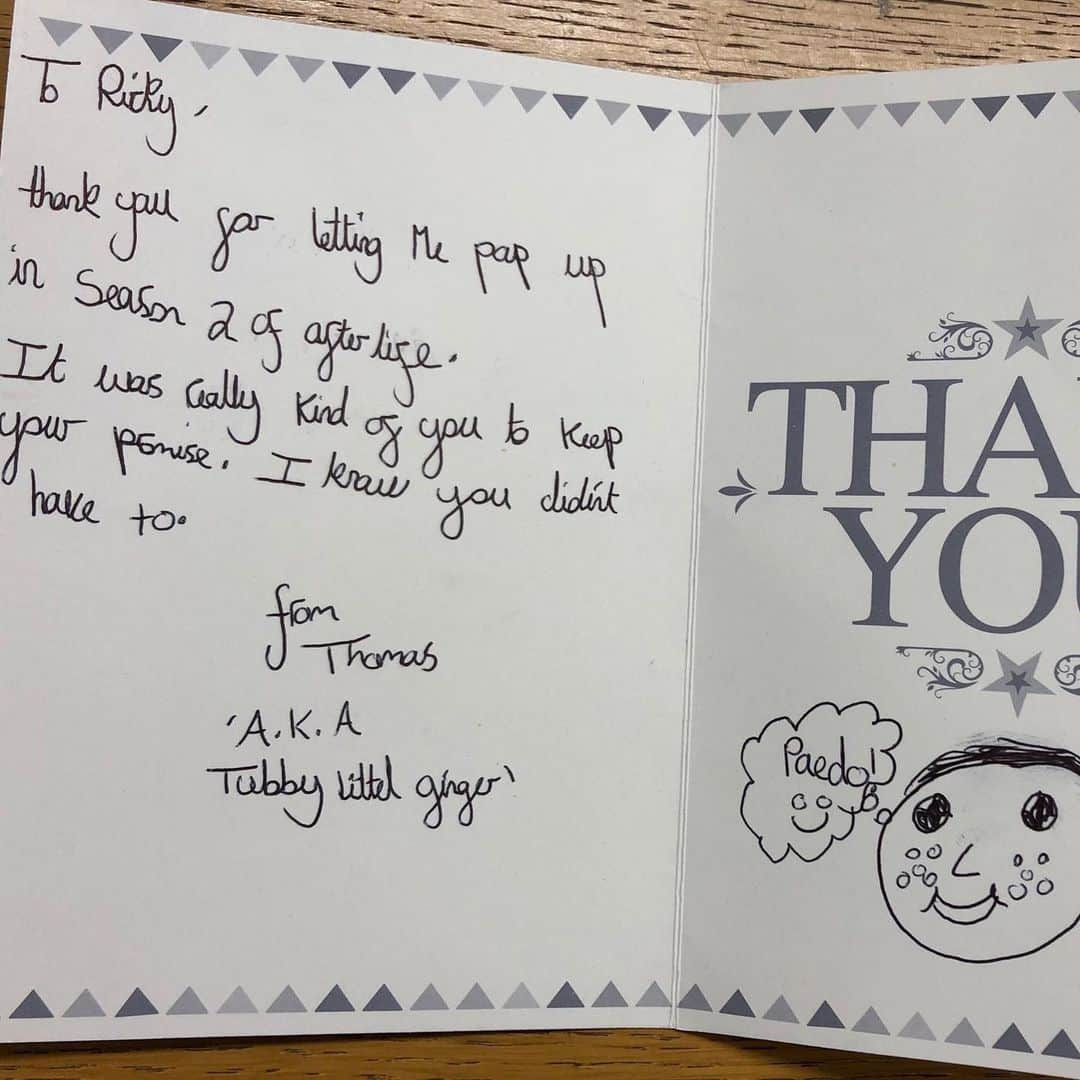 To Ricky,
thank you for letting Me pop up
in Season 2 of after life.
It was really kind of you to keep
your promise. I know you didin't
have to.
from
Thomas
'A.K.A
Tubby littel ginger'
THA
YOU
Paedo!